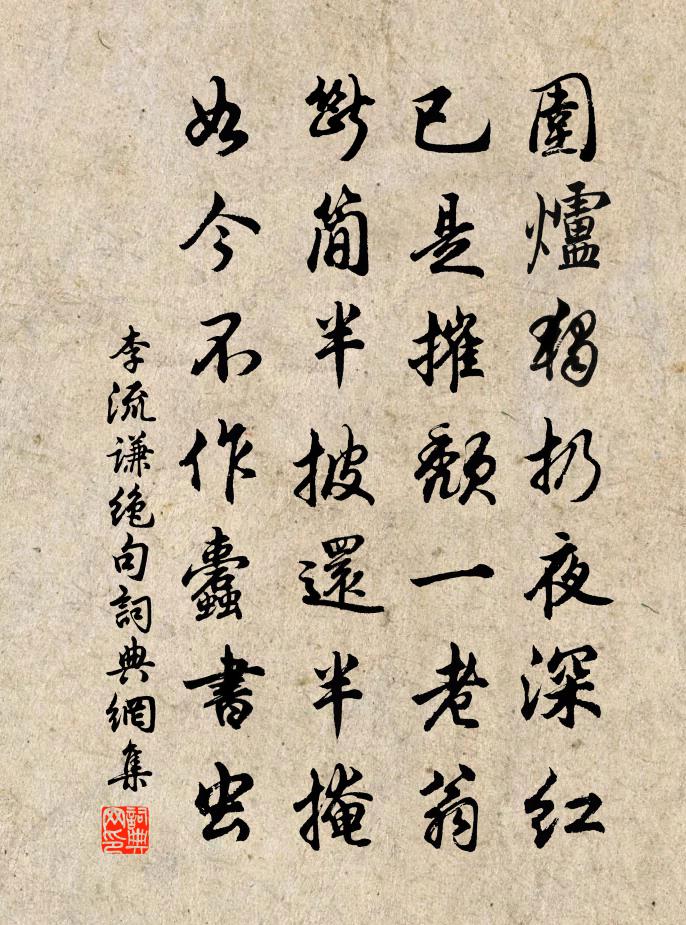 圍爐獨扔夜深紅
已是摧頹一老翁
斷簡半披還半掩
如今不作蠹書虫
李流谦絶句詞典網集
詞典网印